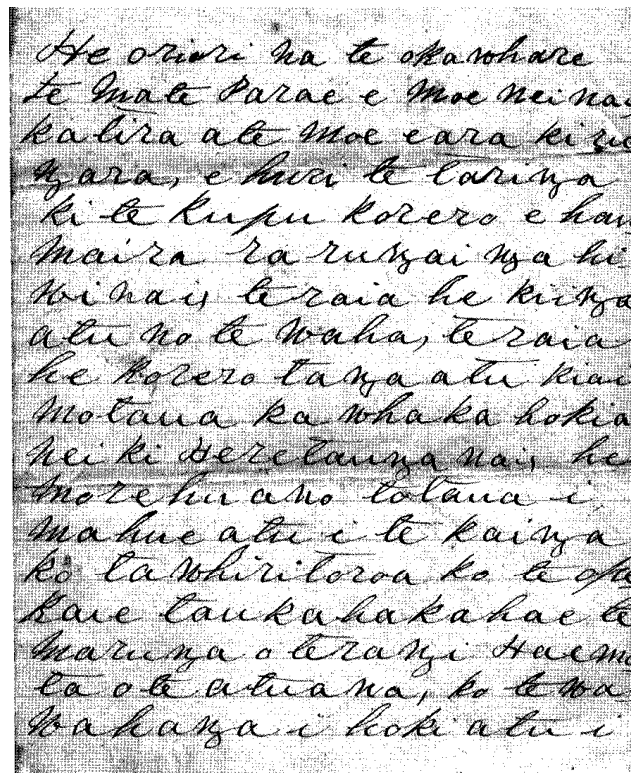 He oriori na te okawhare
te Mate Parae e Moe nei na
ka tira ate Moe eara ki
ngara, e huri te taringa
ki te Kupu Korero e hau
maira ra rungai nga hi
wi nai, teraia he kiinga
atu no te waha, teraia
he Korero tanga atu kiai
Motaua ka whaka hokia
nei ki Heretaunga nai, he
morehu ano totaua i
mahue atu i te kainga
ko tawhiritoroa ko te
Kaie taukahakahae te
Marunga o terangi Haem
ta o te atua na, ko te wa
wahanga i hoki atu i